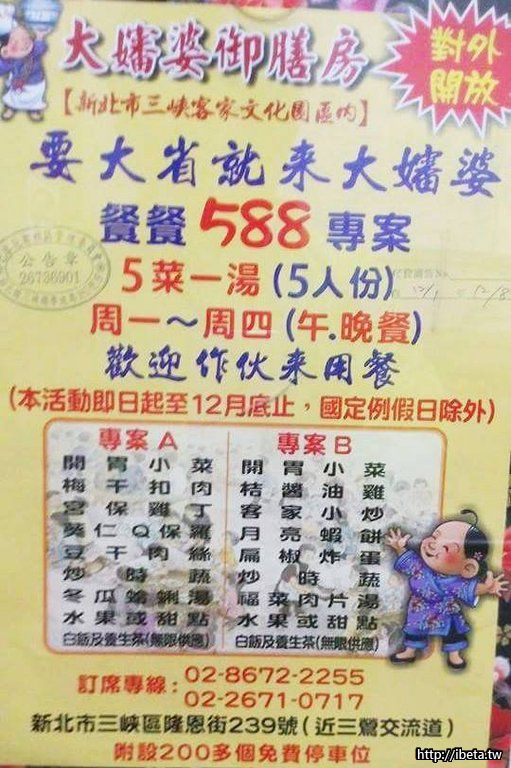 大嬸婆御膳房
對外
開放
【新北市三峽客家文化園區內】
要大省就来大嬸婆
餐餐588專案
公告章
26736901
5菜一湯(5人份)
周一～周四(午.晚餐)
歡迎作伙来用餐
(本活動即日起至12月底止，國定例假日除外)
專案A
開胃小菜
梅干扣肉
宮保雞丁
葵仁Q保羅
豆干肉絲
炒時蔬
冬瓜蛤蜊湯
水果或甜點
白飯及養生茶(無限供應)
專案B
開胃小菜
桔醬油雞
客家小炒
月亮蝦餅
扁椒炸蛋
炒時蔬
福菜肉片湯
水果或甜點
白飯及養生茶(無限供應)
訂席專線：02-8672-2255
02-2671-0717
新北市三峽區隆恩街239號(近三鶯交流道)
附設200多個免費停車位
http://ibeta.tw